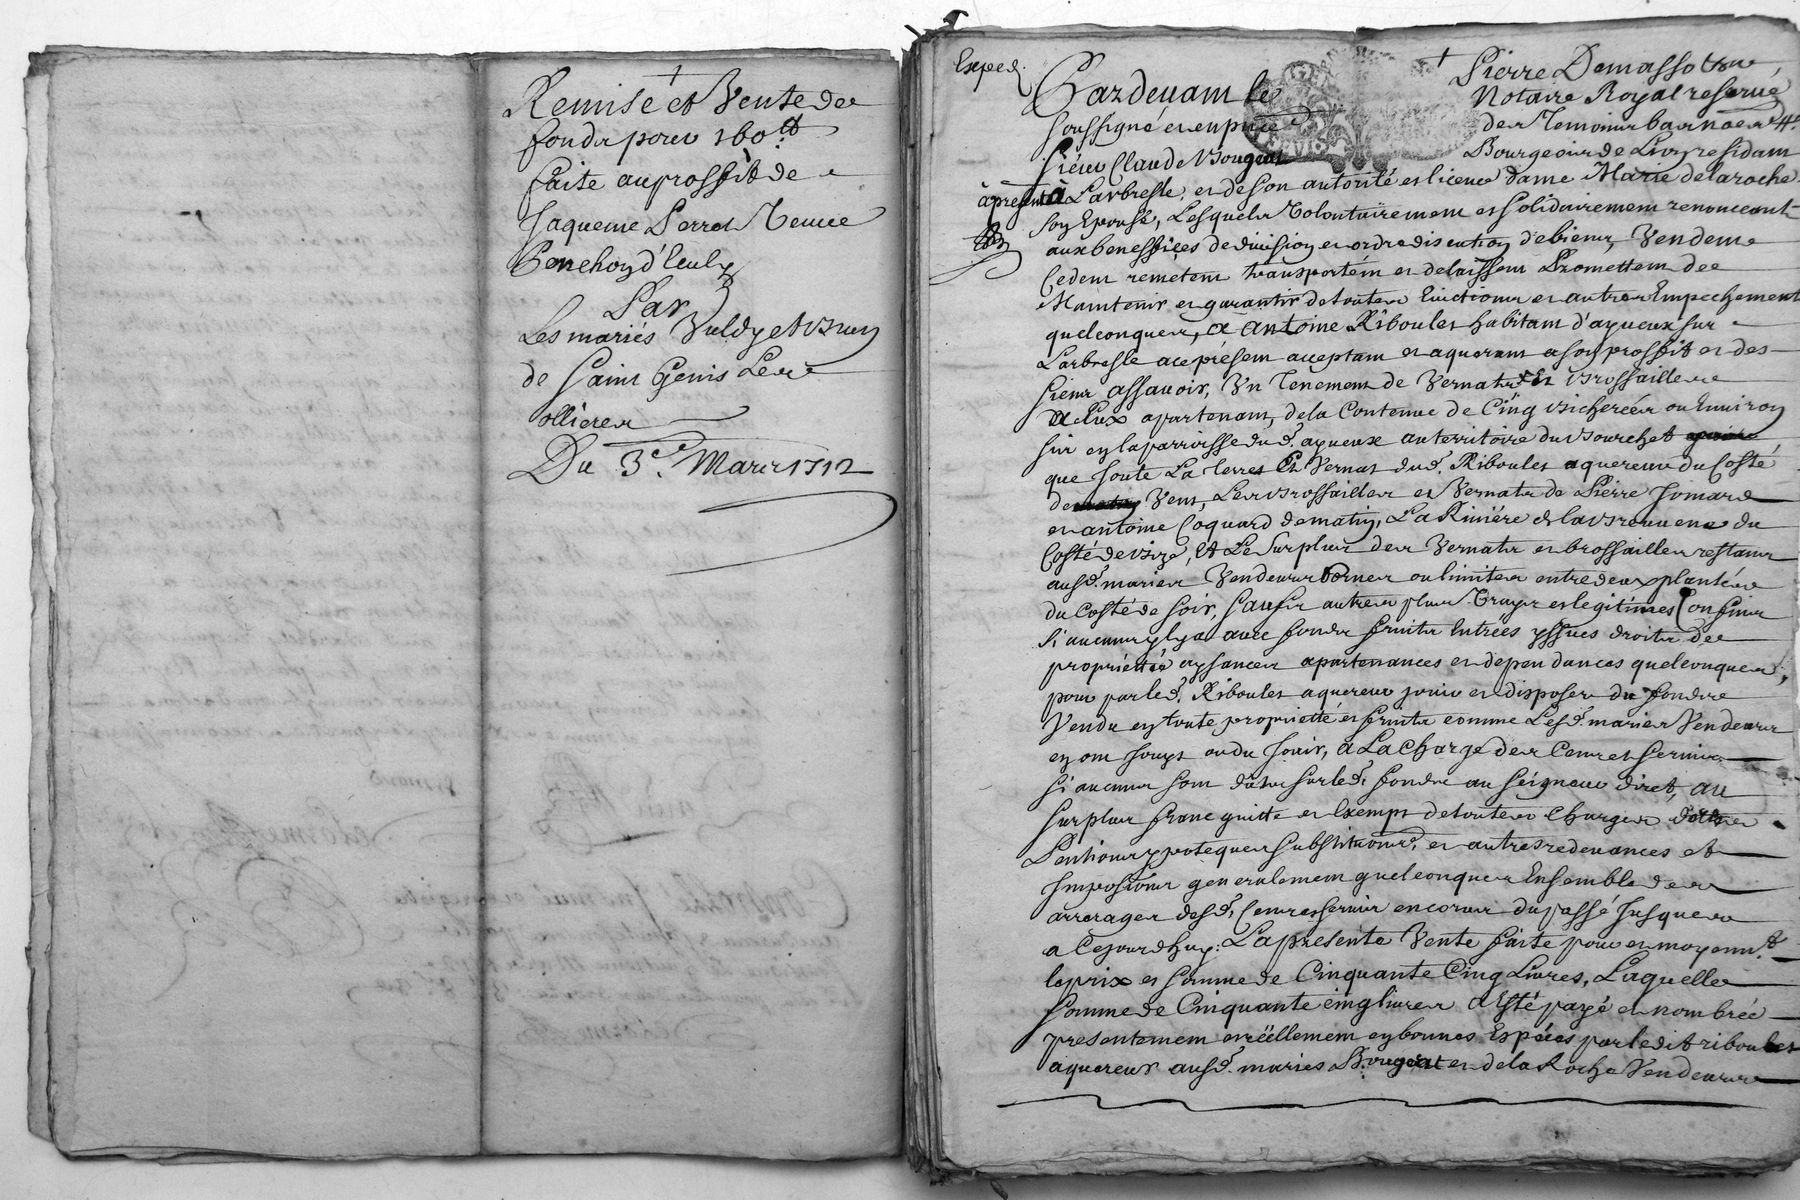 Remise et Vente de
fondz pour 160 ₶
faite au proffit de
Jaqueme Perret Veuve
Benehoy d'Eculy
Par
Les mariés Valdy et Brun
de Saint Genis Les
ollieres
Du 3e. Mars 1712
Exped.
Pardevant le Pierre Demassotzne
Notaire Royal reservé
soussigné et en pnce des Temoins bas nōés
Sieur Claude Bougeat Bourgeois de Lion residant
àpresent à Larbresle, et de son autorité et licence dame Marie delaroche
son Epouse, Lesquels Volontairement et solidairement renonceant
aux beneffices de division et ordre discution de biens, Vendent
Cedent remetent transportent et delaissent Promettent de
Maintenir et garantir de toutes Evictions et autres Empechements
quelconques, a Antoine Riboulet habitant d'ayveux sur
Larbresle ace présent acceptant et aquerant a son proffit et des
siens assavoir, Un Tenement de Vernats et Brossailles
a Eux apartenant, de la Contenue de Cinq Bicherées ou Environ
sis en la parroisse dud. ayveux au territoire du Bourchet
que Joute La Terres et Vernat dud. Riboulet aquereur du Costé
de Vent, Les Brossailles et Vernats de Pierre Jomard
et antoine Coquard de matin, La Riviére de la Brevuene du
Costé de Bize, Et Le surplus des Vernats et brossailles restants
ausd. maries Vendeurs Bornes ou limites entredeux plantées
du Costé de soir, saufs autres plus Vrays et legitimes Confins
si aucuns y l y a avec fonds fruits Entrées yssues droits de
propriétés aysances apartenances et dependances quelconques,
pour par led. Riboulet aquereur jouir et disposer du fondz
Vendu en toute proprietté et fruits comme Lesd. maries Vendeurs
en ont Jouys ou du Jouir, a La Charge des Cens et servis
si aucuns sont dûbs sur led. fondz au seigneur diret, au
surplus franc quitte et Exempt de toutes Charges dettes
Pentions ypoteques substitutions, et autres redevances et
Impositions generalement quelconques Ensemble des
arrerages desd. Cens et servis encorus du passé Jusques
a Cejourdhuy. La presente Vente faite pour et moyennt.
le prix et somme de Cinquante Cinq Livres, Laquelle
somme de Cinquante cinq livres a Esté payé et nombrée
presentement et réellement en bonnes Espéces par ledit riboulet
aquereur ausd. mariés Bougeat et de la Roche Vendeurs